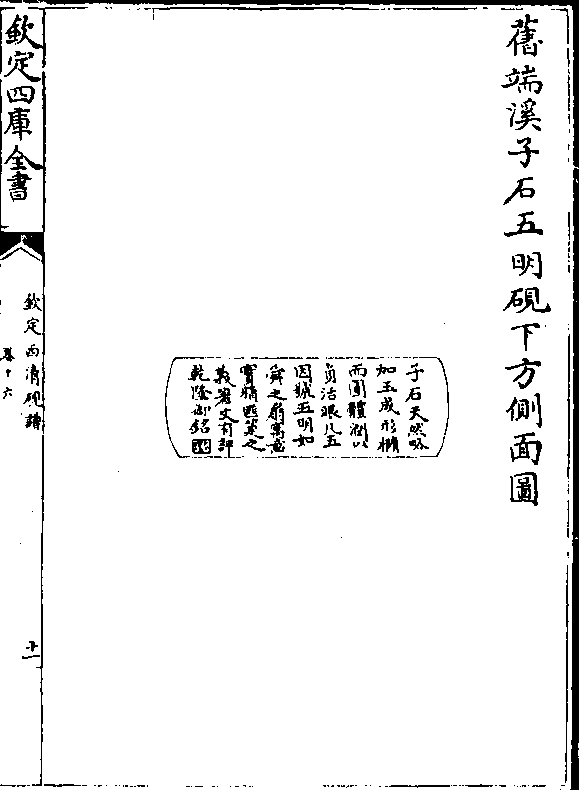 舊端溪子石五明硯下方側面圖
子石天然略
加玉成形橢
而圓體潤以
貞活眼凡五
因號五明如
舜之扇寓意
實精匪筆之
文有評
乾隆御銘
欽定四庫全書
欽定西清硯譜
卷十六
十一